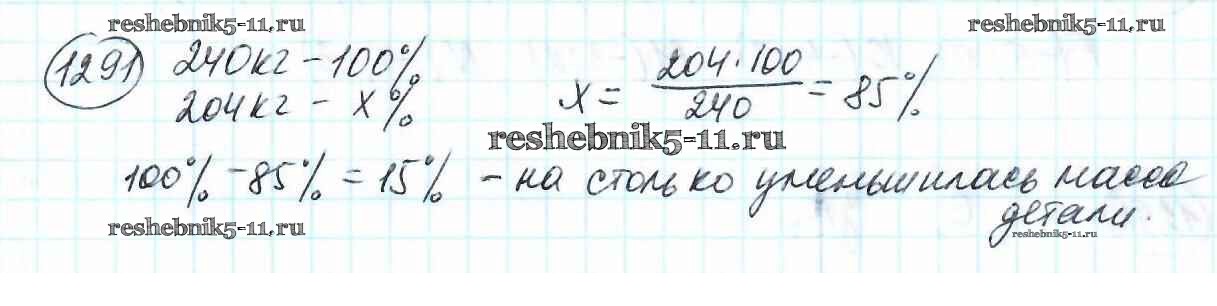 reshebnik5-11.ru
reshebnik5-11.ru
1291 240кг – 100%
204кг – х%
х = 204·100 / 240 = 85%
reshebnik5-11.ru
100% – 85% = 15% – на столько уменьшилась масса
детали.
reshebnik5-11.ru
reshebnik5-11.ru